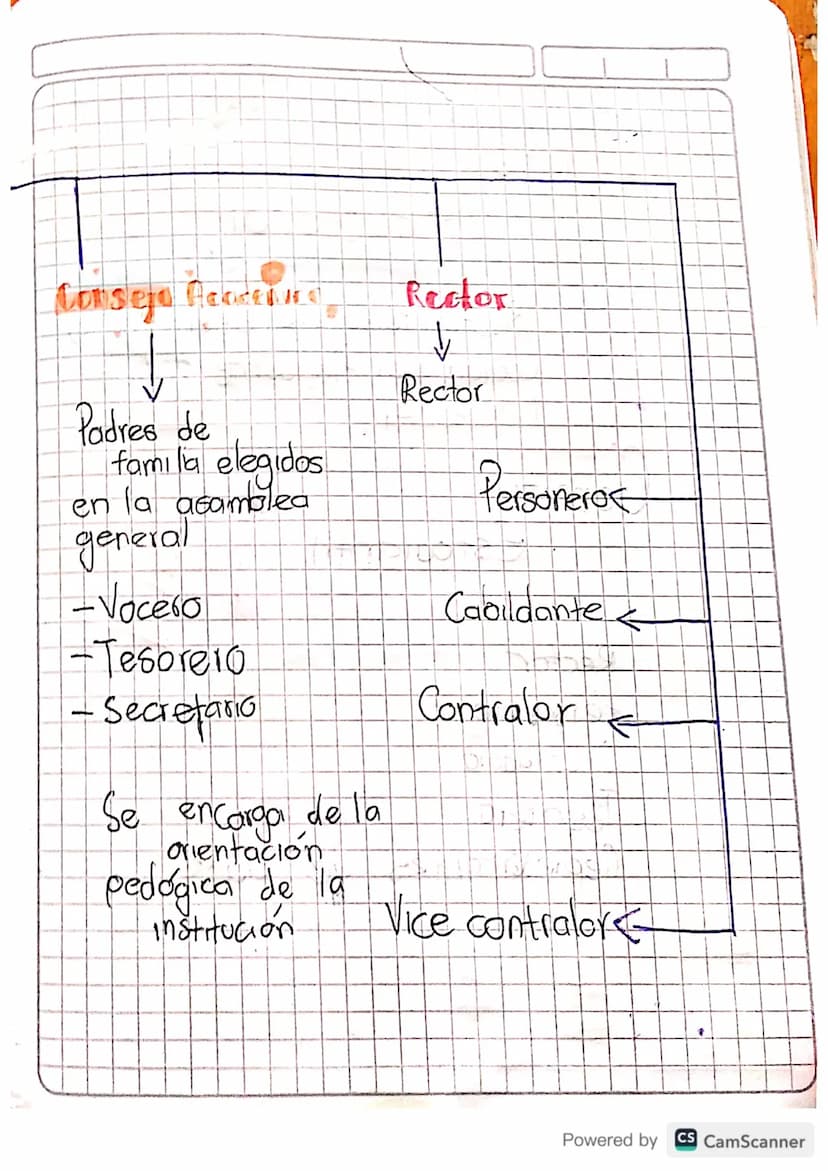 Consejo
Rector
Rector
Padres de
familia elegidos
en la asamblea
general
-Vocero
-Tesorero
-Secretario
Se encarga de la
orientación
pedógica de la
institución
Personero
Cabildante
Contralor
Vice contralor
Powered by CS CamScanner